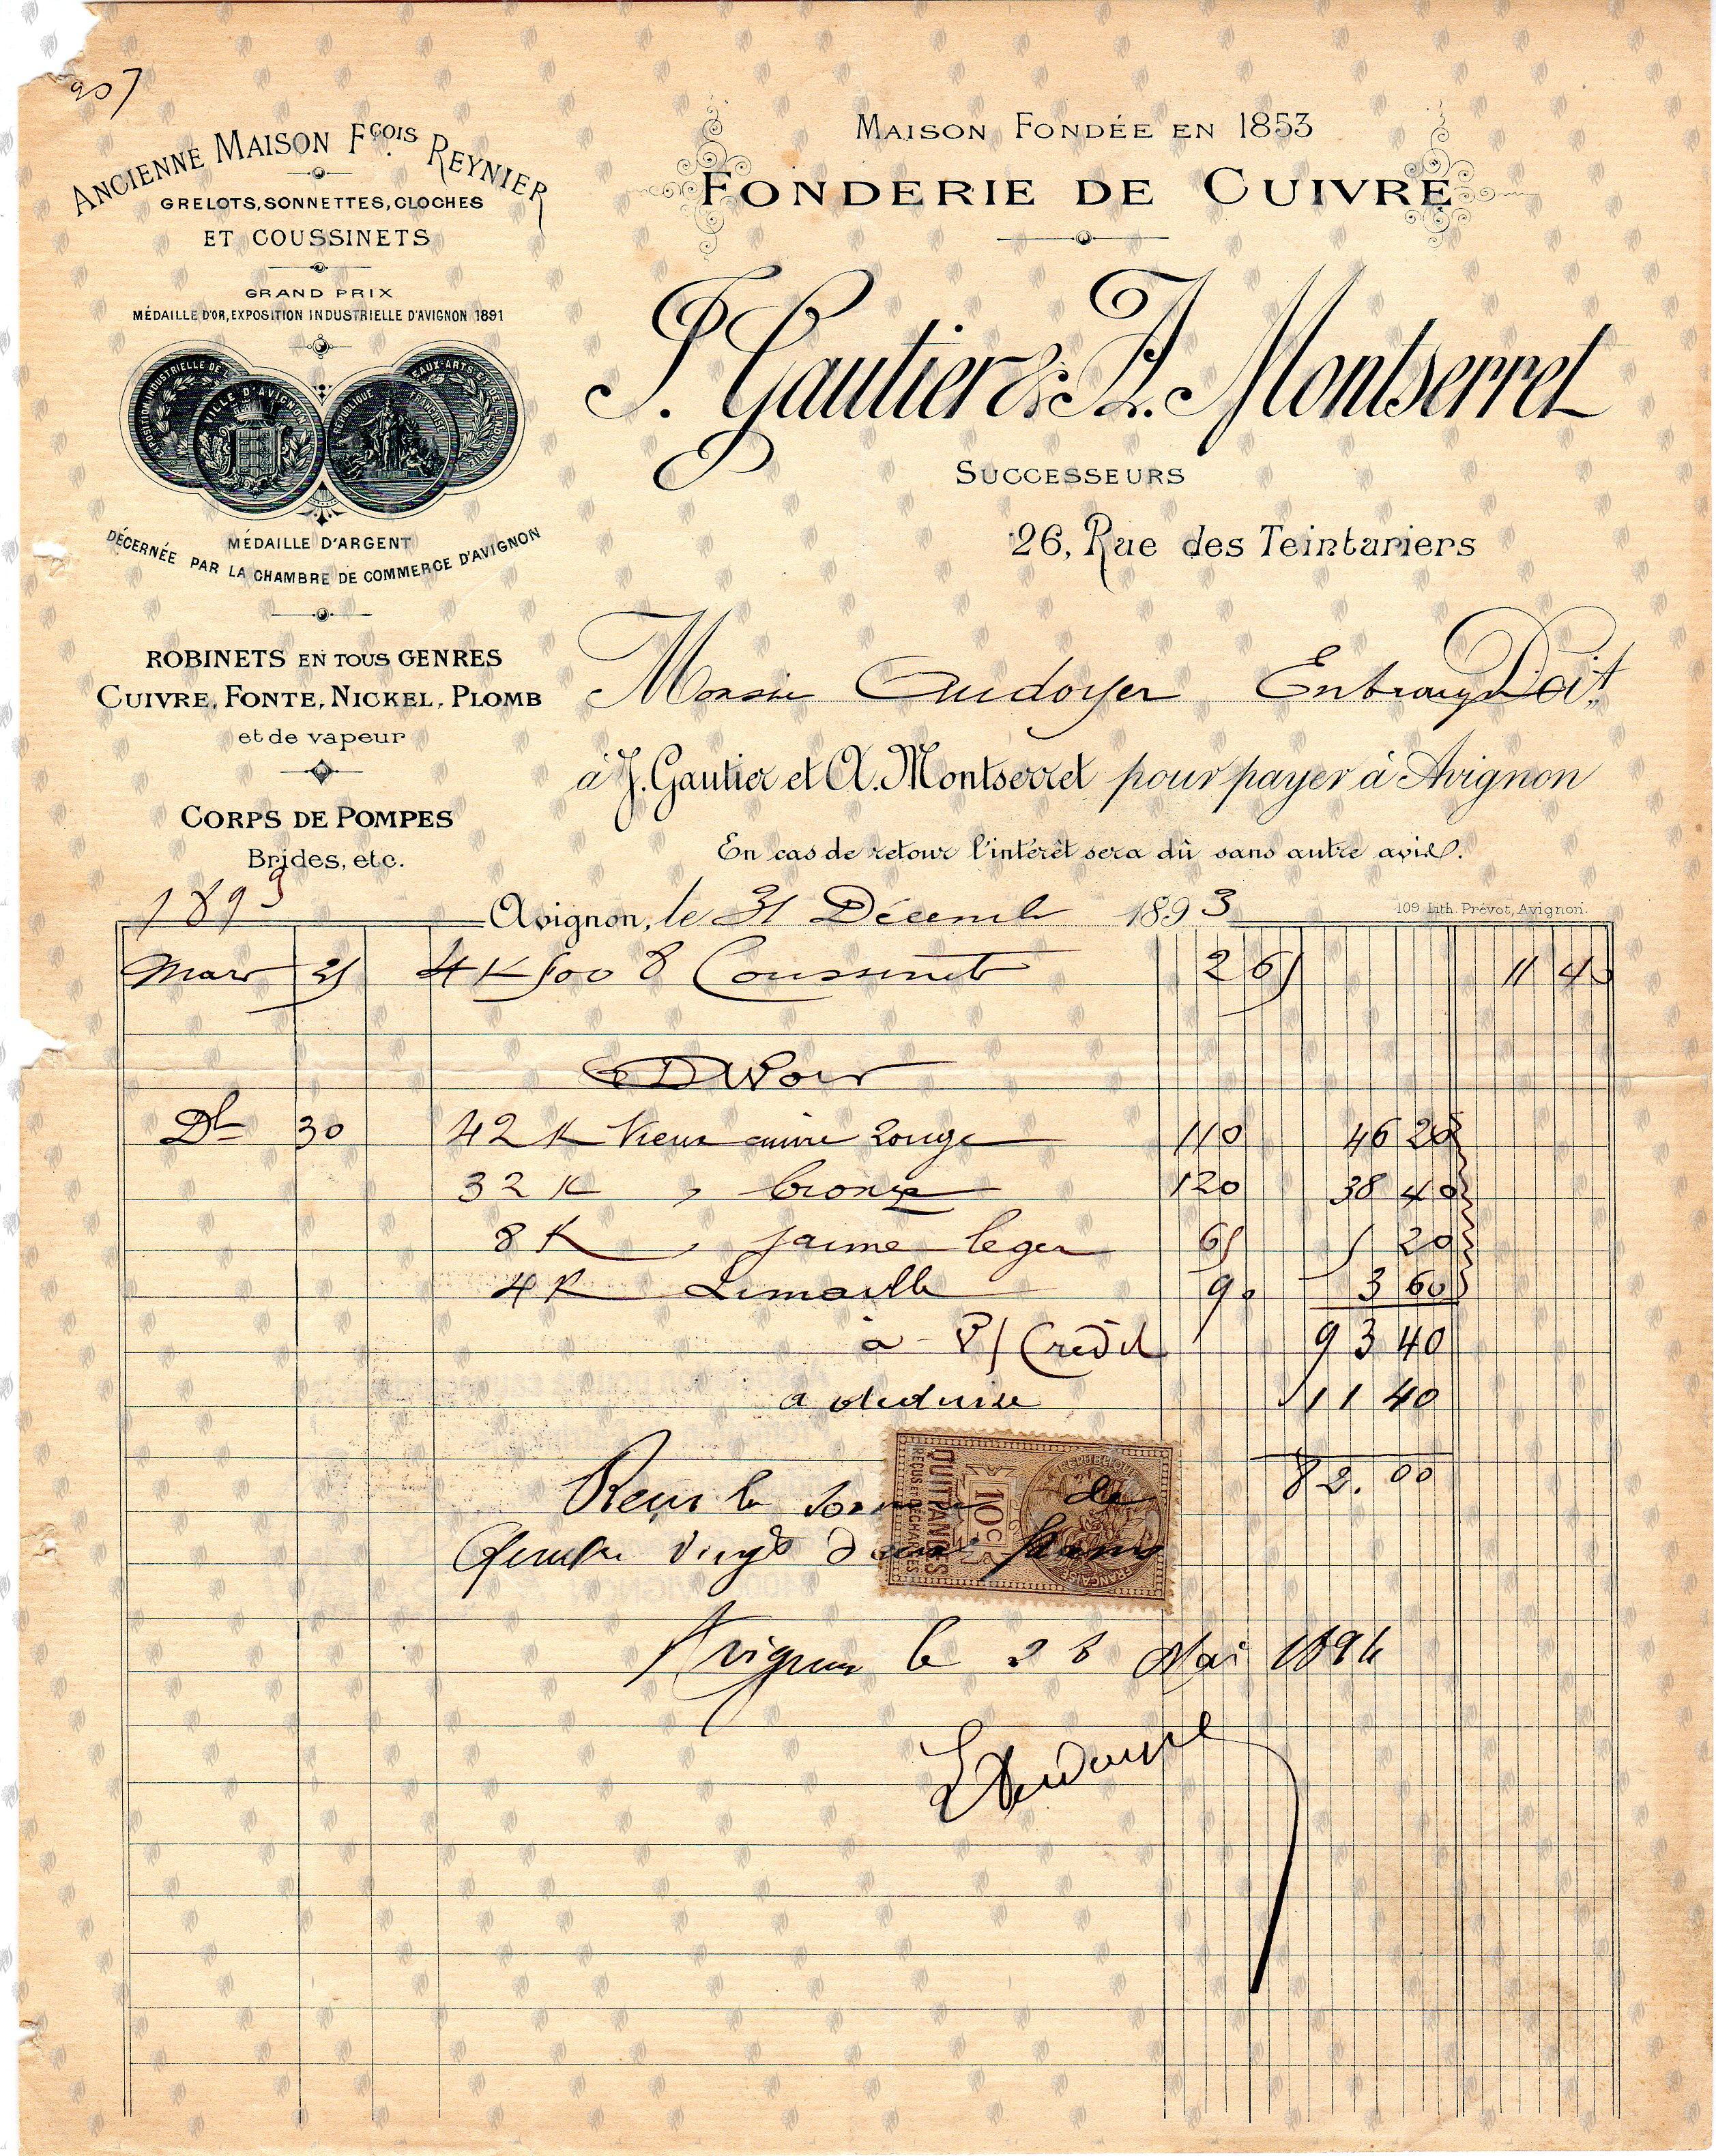 207
ANCIENNE MAISON FÇOIS REYNIER
GRELOTS, SONNETTES, CLOCHES
ET COUSSINETS
GRAND PRIX
MÉDAILLE D'OR, EXPOSITION INDUSTRIELLE D'AVIGNON 1891
EXPOSITION INDUSTRIELLE DE L
VILLE D'AVIGNON
RÉPUBLIQUE FRANÇAISE
BEAUX-ARTS ET DE L'INDUSTRIE
MÉDAILLE D'ARGENT
DÉCERNÉE PAR LA CHAMBRE DE COMMERCE D'AVIGNON
ROBINETS EN TOUS GENRES
CUIVRE, FONTE, NICKEL, PLOMB
et de vapeur
CORPS DE POMPES
Brides, etc.
MAISON FONDÉE EN 1853
FONDERIE DE CUIVRE
J. Gautier & A. Montserret
SUCCESSEURS
26, Rue des Teinturiers
Audoyer Doit
à J. Gautier et A. Montserret pour payer à Avignon
En cas de retour l'intérêt sera dû sans autre avis.
1893 Avignon, le 31 Décemb 1893
109 Lith. Prévot, Avignon.
Mars 31 4 K 500 8 Coussinets 2 65 11 40
Avoir
Dbre 30 42 K Vieux cuivre rouge 110 46 20
32 K " bronze 120 38 40
8 K " jaune leger 65 5 20
4 K Limaille 90 3 60
à V/ Crédit 93 40
a deduire 11 40
82.00
Reçu la somme de
Quatre vingt deux francs
QUITTANCES
REÇUS ET DÉCHARGES
10 C
RÉPUBLIQUE FRANÇAISE
Avignon le 28 Mai 1894